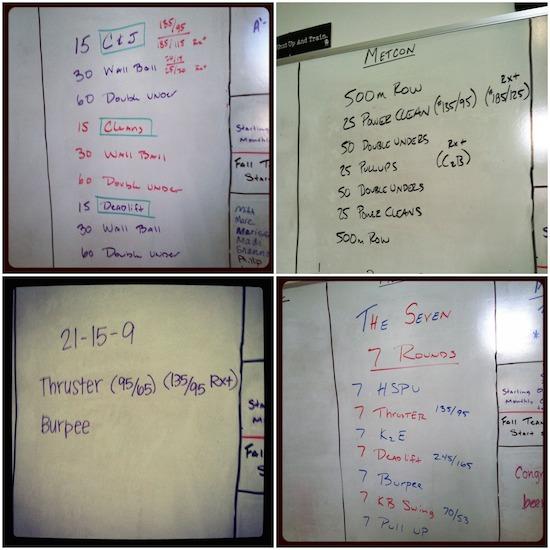 15 C & J 135/95
185/115 Rx+
30 Wall Ball 20/14
25/20 Rx+
60 Double Under
15 Cleans
30 Wall Ball
60 Double Under
15 Deadlift
30 Wall Ball
60 Double Under
A
Starting
Monthl
Fall T
Star
Matt
Marc
Maris
Madi
Brann
Philip
Shut Up And Train.
METCON
500m ROW
25 POWER CLEAN (#135/95) 2x+ (#185/125)
50 DOUBLE UNDERS
25 PULLUPS 2x+ (C2B)
50 DOUBLE UNDERS
25 POWER CLEANS
500m ROW
21-15-9
Thruster (95/65) (135/95 Rx+)
Burpee
Sta
M
Fal
S
THE SEVEN
7 ROUNDS
7 HSPU
7 THRUSTER 135/95
7 K2E
7 Deadlift 245/165
7 Burpee
7 KB Swing 70/53
7 Pull up
Starting
Monthly
Fall Tea
Start
Congr
bee